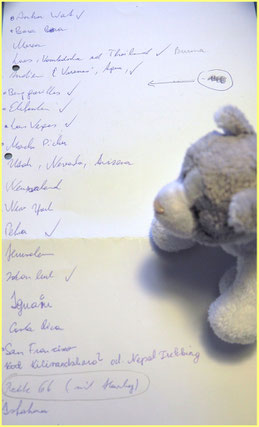 Ankor Wat ✓
Bora Bora
Laos, Kambodscha od Thailand ✓ Burma
Indien (Varanasi, Agra, ✓
Berggorillas ✓
Elefanten ✓
Las Vegas ✓
Machu Pichu
Utah, Nevada, Arizona
Neuseeland
New York
Petra ✓
Jerusalem
Istanbul ✓
Iguacu
Costa Rica
San Francisco
Kilimandsharo od. Nepal Trekking
Route 66 (mit Harley)